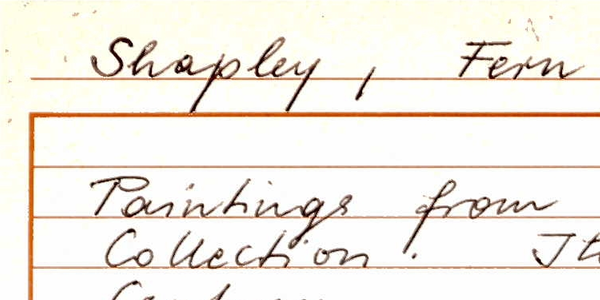 Shapley, Fern
Paintings from
Collection. It